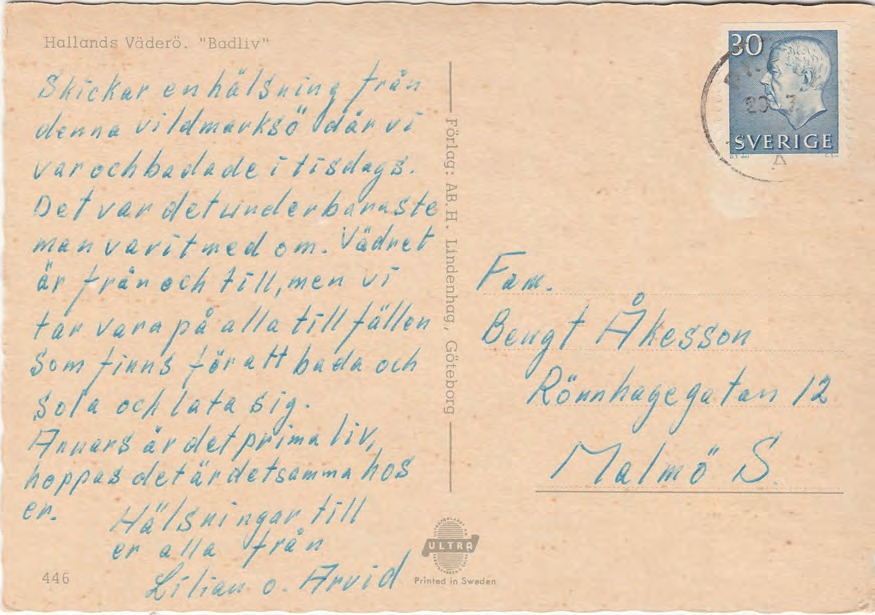 Hallands Väderö. "Badliv"
Skickar en hälsning från
denna vildmarksö där vi
var och badade i tisdags.
Det var det underbaraste
man varit med om. Vädret
är från och till, men vi
tar vara på alla tillfällen
som finns för att bada och
sola och lata sig.
Annars är det prima liv,
hoppas det är detsamma hos
er.
Hälsningar till
er alla från
Lilian o. Arvid
446
Förlag: AB. H. Lindenhag, Göteborg
ULTRA
Printed in Sweden
30
SVERIGE
20 7
A
Fam.
Bengt Åkesson
Rönnhagegatan 12
Malmö S.